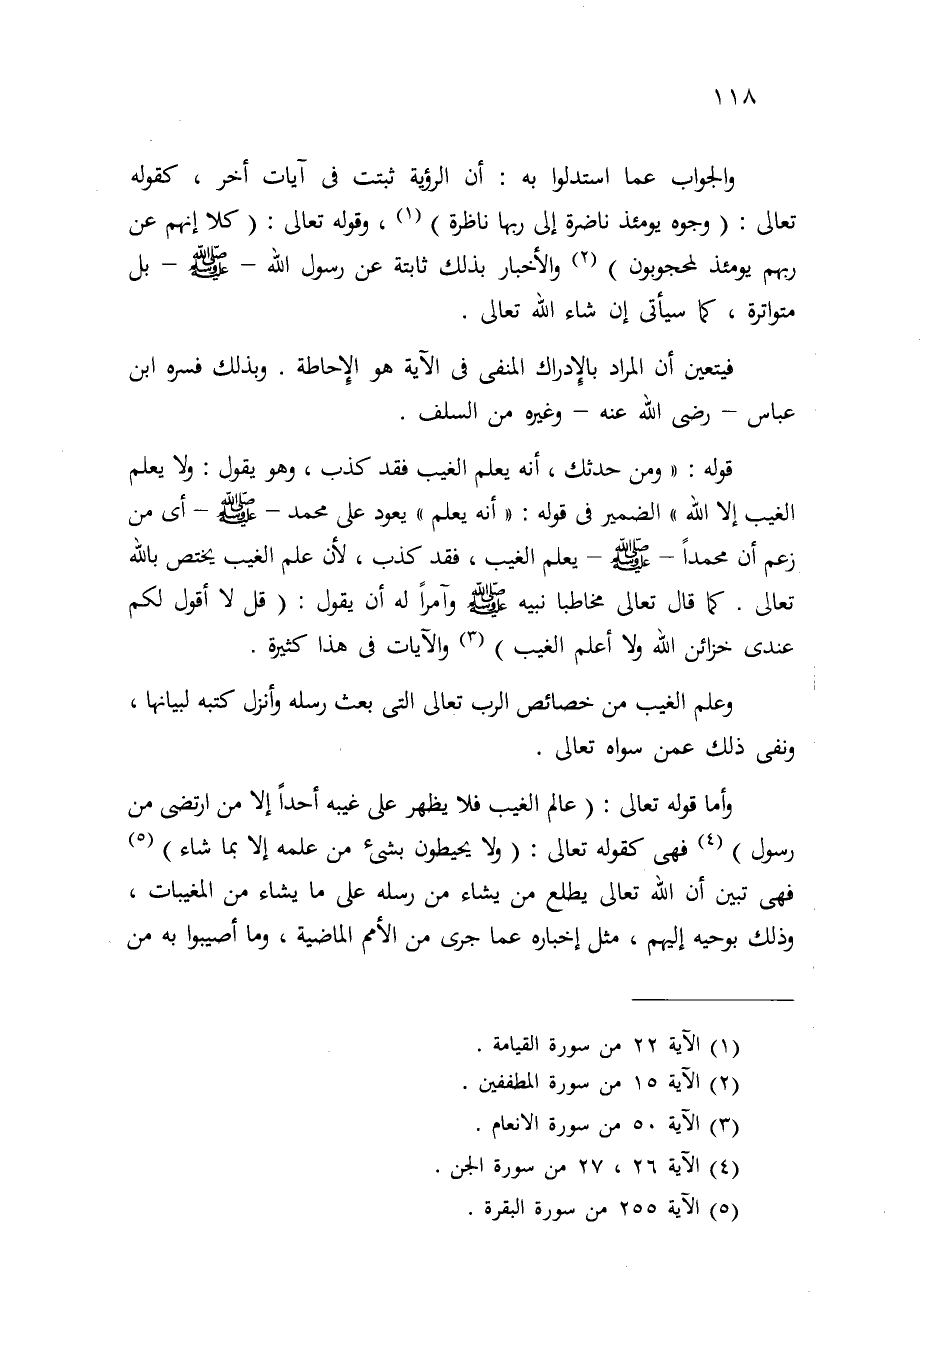 ١١٨
والجواب عما استدلوا به : أن الرؤية ثبتت فى آيات أخر ، كقوله
تعالى : ( وجوه يومئذ ناضرة إلى ربها ناظرة ) (١) ، وقوله تعالى : ( كلا إنهم عن
ربهم يومئذ لمحجوبون ) (٢) والأخبار بذلك ثابتة عن رسول الله – ﷺ – بل
متواترة ، كما سيأتى إن شاء الله تعالى .
فيتعين أن المراد بالإدراك المنفى فى الآية هو الإحاطة . وبذلك فسره ابن
عباس – رضى الله عنه – وغيره من السلف .
قوله : « ومن حدثك ، أنه يعلم الغيب فقد كذب ، وهو يقول : ولا يعلم
الغيب إلا الله » الضمير فى قوله : « أنه يعلم » يعود على محمد – ﷺ – أى من
زعم أن محمداً – ﷺ – يعلم الغيب ، فقد كذب ، لأن علم الغيب يختص بالله
تعالى . كما قال تعالى مخاطبا نبيه ﷺ وآمراً له أن يقول : ( قل لا أقول لكم
عندى خزائن الله ولا أعلم الغيب ) (٣) والآيات فى هذا كثيرة .
وعلم الغيب من خصائص الرب تعالى التى بعث رسله وأنزل كتبه لبيانها ،
ونفى ذلك عمن سواه تعالى .
وأما قوله تعالى : ( عالم الغيب فلا يظهر على غيبه أحداً إلا من ارتضى من
رسول ) (٤) فهى كقوله تعالى : ( ولا يحيطون بشىء من علمه إلا بما شاء ) (٥)
فهى تبين أن الله تعالى يطلع من يشاء من رسله على ما يشاء من المغيبات ،
وذلك بوحيه إليهم ، مثل إخباره عما جرى من الأمم الماضية ، وما أصيبوا به من
(١) الآية ٢٢ من سورة القيامة .
(٢) الآية ١٥ من سورة المطففين .
(٣) الآية ٥٠ من سورة الانعام .
(٤) الآية ٢٦ ، ٢٧ من سورة الجن .
(٥) الآية ٢٥٥ من سورة البقرة .